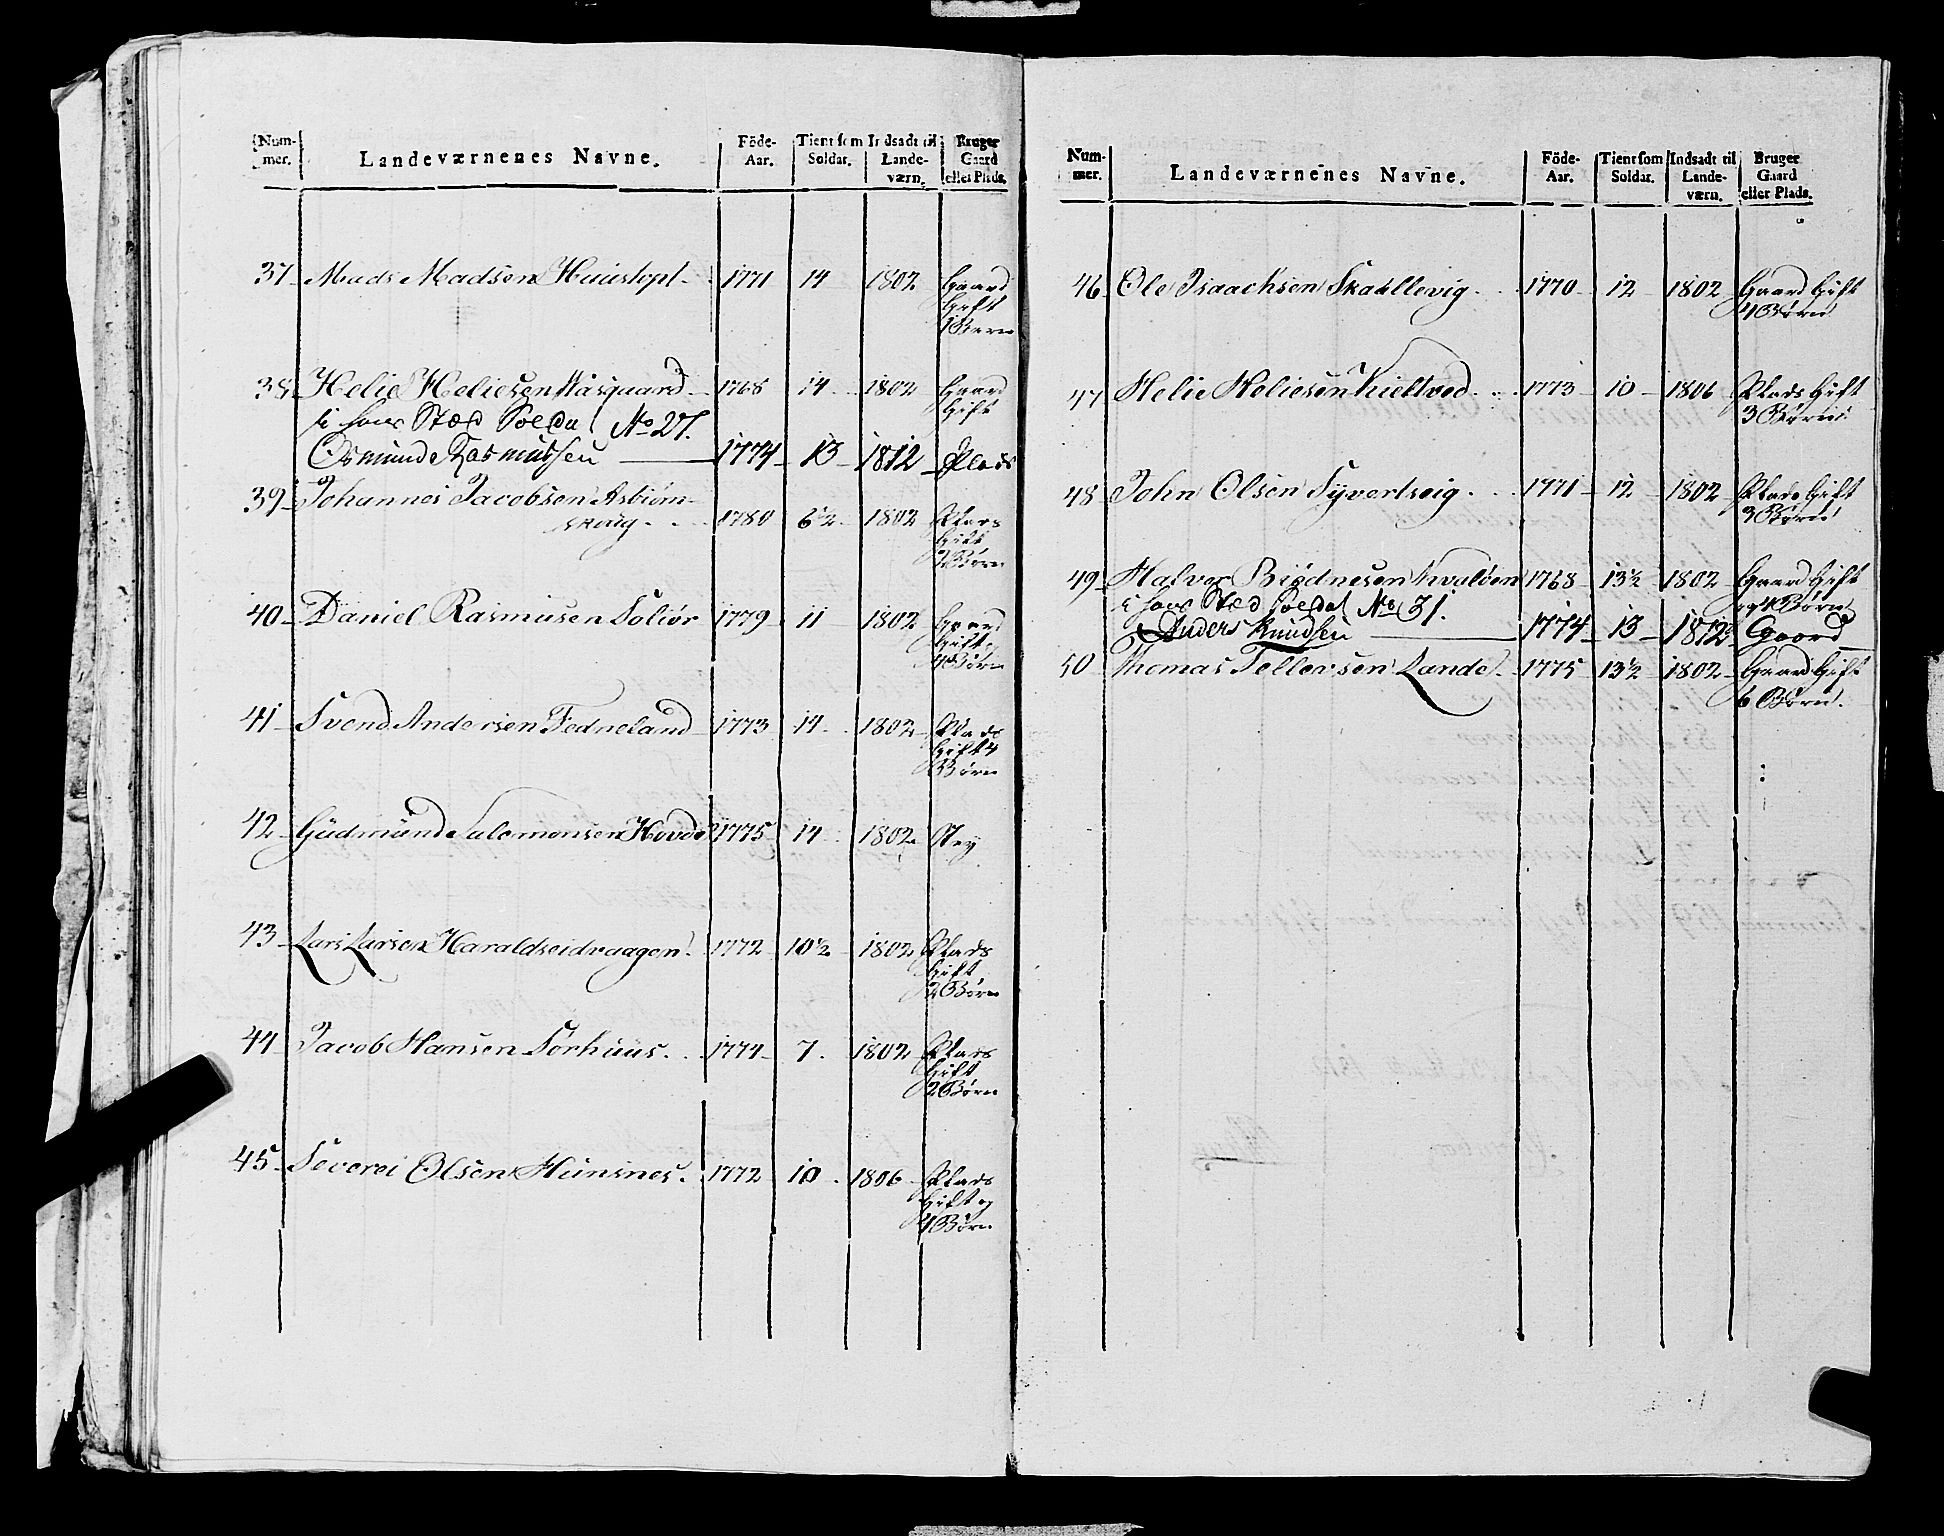 Num-mer. Landeværnenes Navne. Föde-Aar. Tient som Soldat. Indsadt til Lande-værn. Bruger Gaard eller Plads.
37 Mads Madsen 1771 14 1802 Gaard
Gift
1 Børn
38 Helie Heliesen Aasgaard 1768 14 1802 Gaard
Gift
i hans Stæd Soldat No 27.
Osmund Rasmussen 1774 13 1812 Plads
39 Johannes Jacobsen Asbiørn-
skoug 1780 6½ 1802 Plads
Gift
2 Børn
40 Daniel Rasmusen Soliør 1779 11 1802 Gaard
Gift
4 Børn
41 Svend Andersen Fedneland 1773 14 1802 Plads
Gift 4
Børn
42 Gudmund Salomonsen Hovde 1775 14 1802 Ney
43 Lars Larsen Haraldseidvaagen 1772 10½ 1802 Plads
Gift
2 Børn
44 Jacob Hansen Sørhuus 1774 7 1802 Plads
Gift
2 Børn
45 Severei Olsen Hunsnes 1772 10 1806 Plads
Gift og
4 Børn
Num-mer. Landeværnenes Navne. Föde-Aar. Tient som Soldat. Indsadt til Lande-værn. Bruger Gaard eller Plads.
46 Ole Isaachsen Skallevig 1770 12 1802 Gaard Gift
4 Børn
47 Helie Heliesen Kieltved 1773 10 1806 Plads Gift
3 Børn
48 John Olsen Syvertsvig 1771 12 1802 Plads Gift
3 Børn
49 Halvor Biødnesen Kvaløen 1768 13½ 1802 Gaard Gift
og 4 Børn
i hans Stæd Soldat No 31.
Anders Knudsen 1774 13 1812 Gaard
50 Thomas Tellevsen Lande 1775 13½ 1802 Gaard Gift
6 Børn.